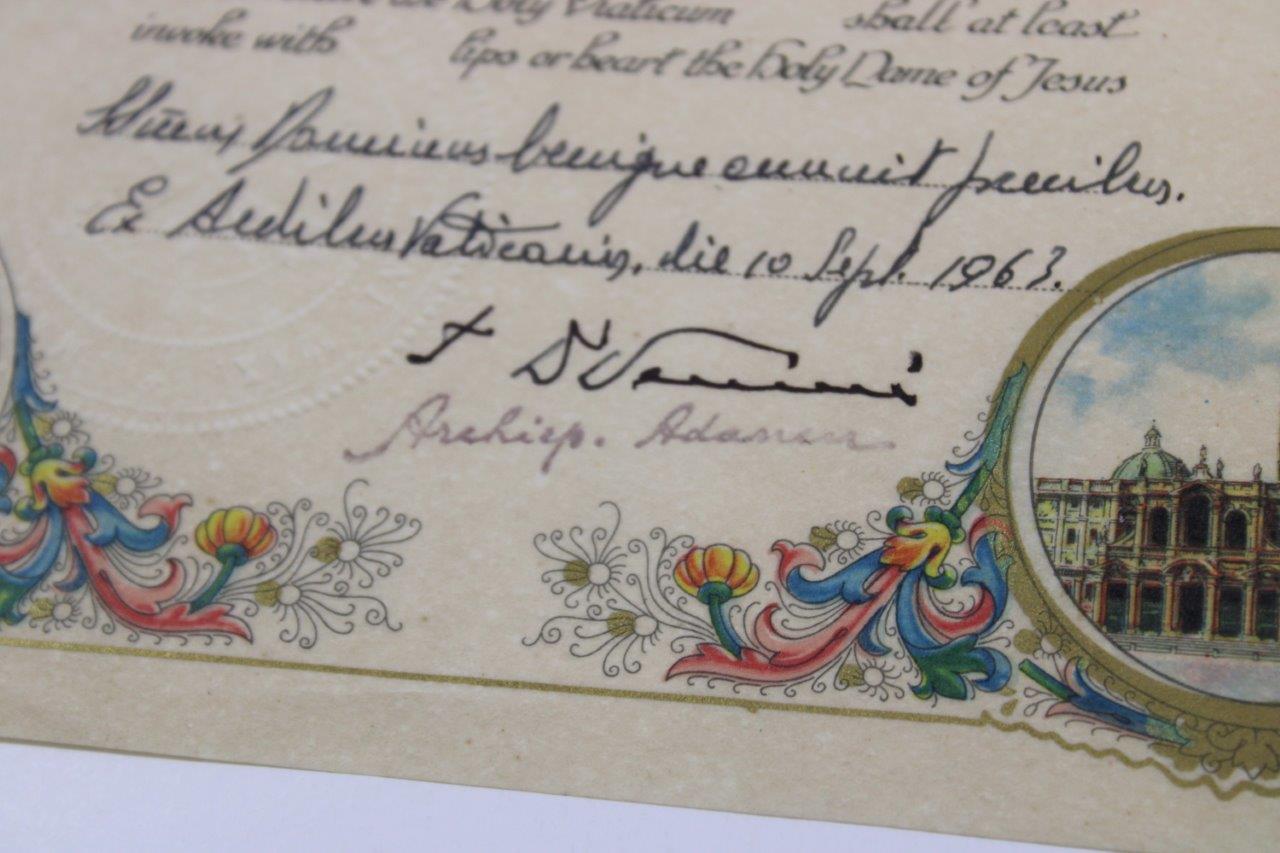 the Holy Viaticum shall at least
invoke with lips or heart the Holy Name of Jesus
Dominus benigne annuit precibus.
Ex Aedibus Vaticanis, die 10 Sept. 1963.
Archiep.